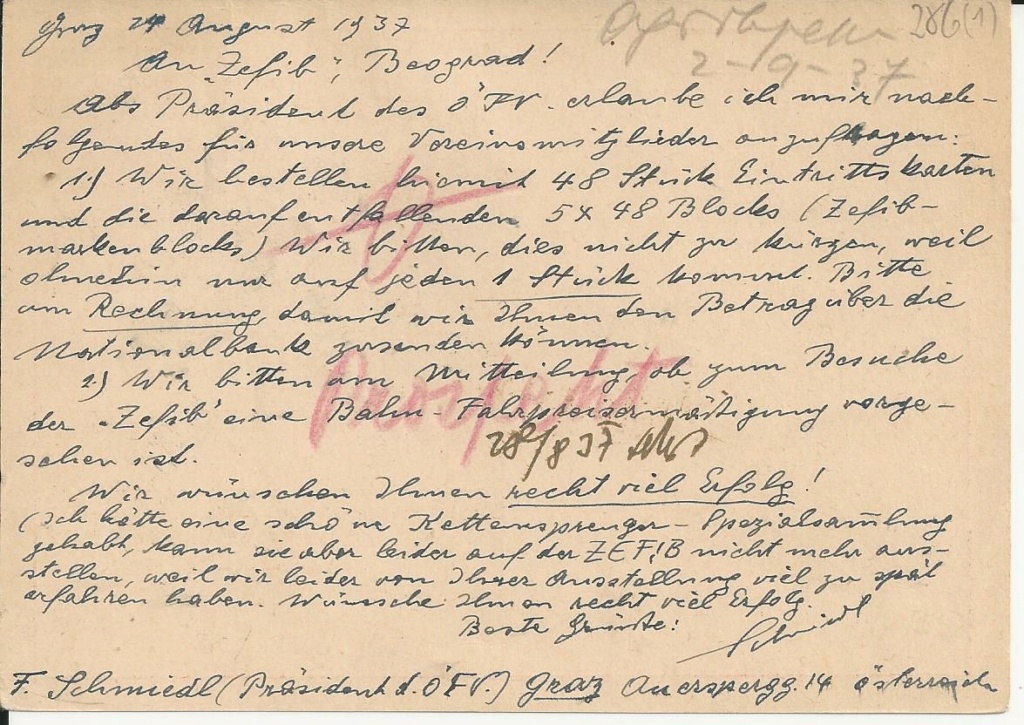 286(1)
2-9-37
Graz 24 August 1937
An „Zefib", Beograd!
Als Präsident des Ö F V. erlaube ich mir nach-
folgendes für unsere Vereinsmitglieder anzufragen:
1.) Wir bestellen hiemit 48 Stück Eintrittskarten
und die darauf entfallenden 5x48 Blocks (Zefib-
markenblocks) Wir bitten, dies nicht zu kürzen, weil
ohnehin nur auf jeden 1 Stück kommt. Bitte
um Rechnung, damit wir Ihnen den Betrag über die
Nationalbank zusenden können.
2.) Wir bitten um Mitteilung, ob zum Besuche
der „Zefib" eine Bahn-Fahrpreisermäßigung vorge-
sehen ist.
Prospekt
28/8 37
Wir wünschen Ihnen recht viel Erfolg!
(Ich hätte eine schöne Kettensprenger-Spezialsam̅lung
gehabt, kann sie aber leider auf der ZEFIB nicht mehr aus-
stellen, weil wir leider von Ihrer Ausstellung viel zu spät
erfahren haben. Wünsche Ihnen recht viel Erfolg.
Beste Grüsse:
Schmiedl
F. Schmiedl (Präsident d. Ö F V.) Graz Auerspergg. 14 Österreich